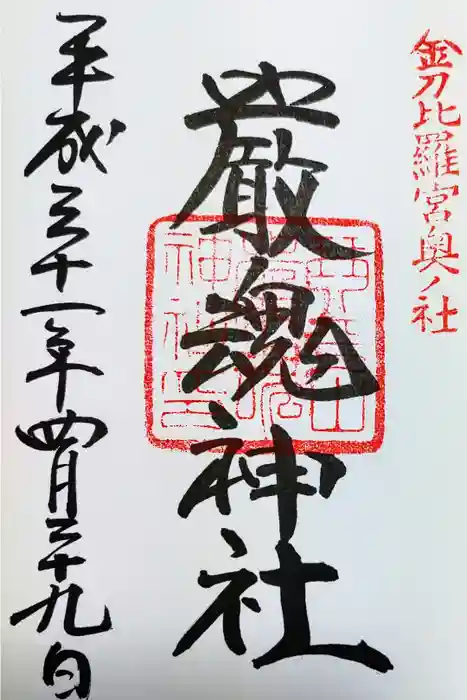 金刀比羅宮奥ノ社
厳魂神社
平成三十一年四月二十九日